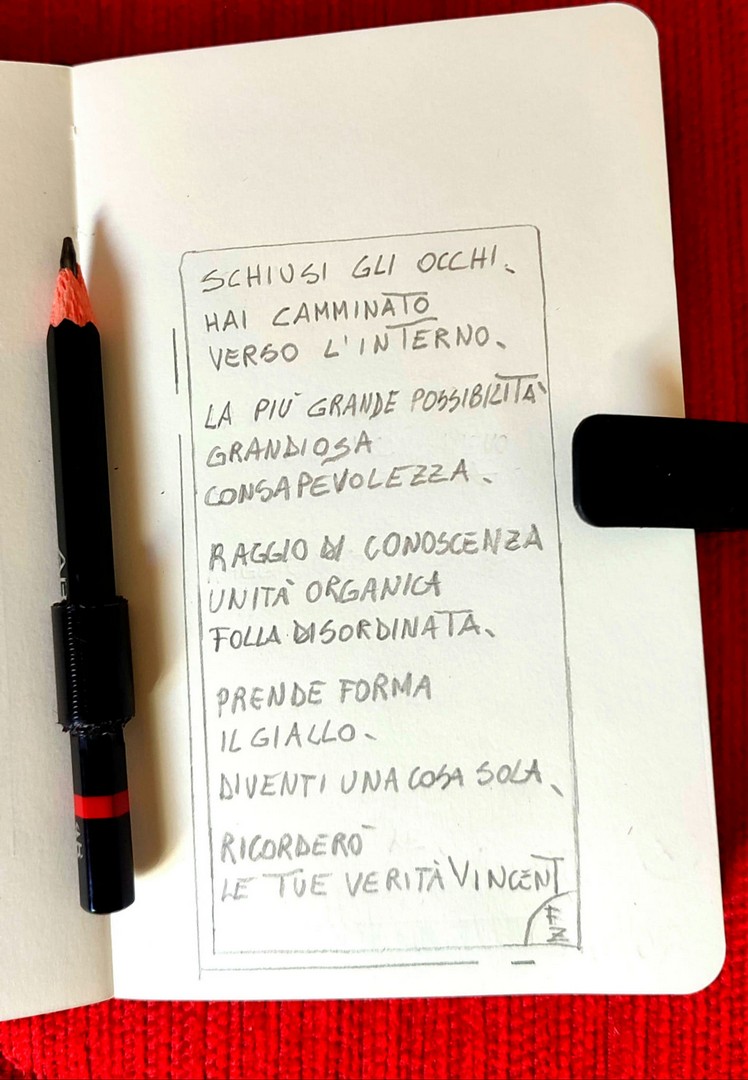 SCHIUSI GLI OCCHI.
HAI CAMMINATO
VERSO L'INTERNO.
LA PIÙ GRANDE POSSIBILITÀ
GRANDIOSA
CONSAPEVOLEZZA.
RAGGIO DI CONOSCENZA
UNITÀ ORGANICA
FOLLA DISORDINATA.
PRENDE FORMA
IL GIALLO.
DIVENTI UNA COSA SOLA.
RICORDERÒ
LE TUE VERITÀ VINCENT
FZ